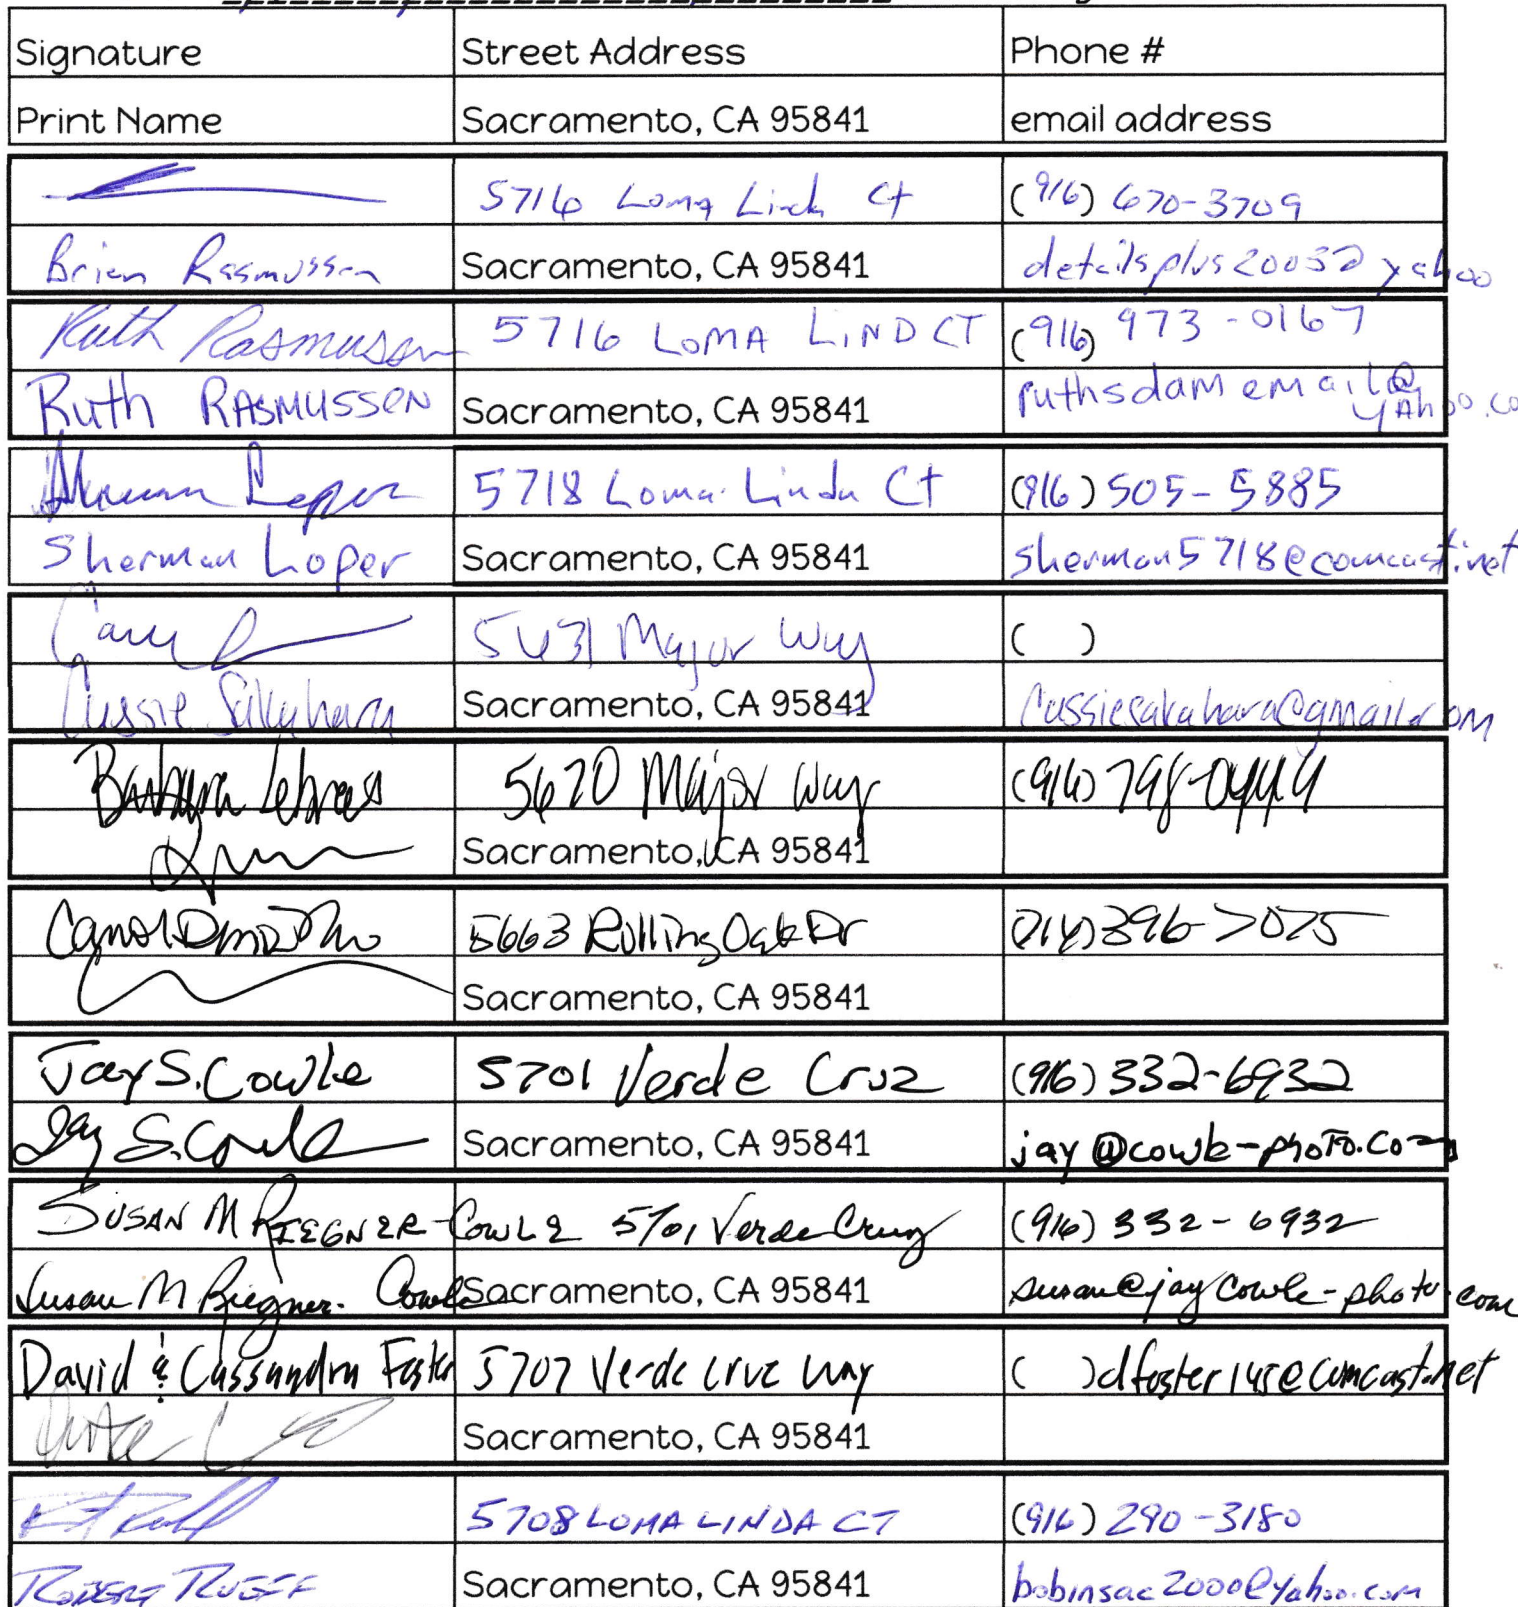 Signature Street Address Phone #
Print Name Sacramento, CA 95841 email address
5716 Loma Linda Ct (916) 670-3709
Brian Rasmussen Sacramento, CA 95841 detailsplus2003@yahoo
Ruth Rasmussen 5716 LOMA LIND CT (916) 973-0167
Ruth RASMUSSEN Sacramento, CA 95841 ruthsdamemail@yahoo.co
Sherman Loper 5718 Loma Linda Ct (916) 505-5885
Sherman Loper Sacramento, CA 95841 sherman5718@comcast.net
5631 Major Way ( )
Cassie Sakahara Sacramento, CA 95841 cassiesakahara@gmail.com
Barbara 5670 Major Way (916) 798-0444
Sacramento, CA 95841
Carol 5663 Rolling Oak Dr (916) 396-7075
Sacramento, CA 95841
Jay S. Cowle 5701 Verde Cruz (916) 332-6932
Jay S. Cowle Sacramento, CA 95841 jay@cowle-photo.com
SUSAN M RIEGNER-COWLE 5701 Verde Cruz (916) 332-6932
Susan M Riegner-Cowle Sacramento, CA 95841 susan@jaycowle-photo.com
David & Cassandra Foster 5707 Verde Cruz Way ( ) dfoster145@comcast.net
Sacramento, CA 95841
5708 LOMA LINDA CT (916) 290-3180
ROBERT RUEFF Sacramento, CA 95841 bobinsac2000@yahoo.com